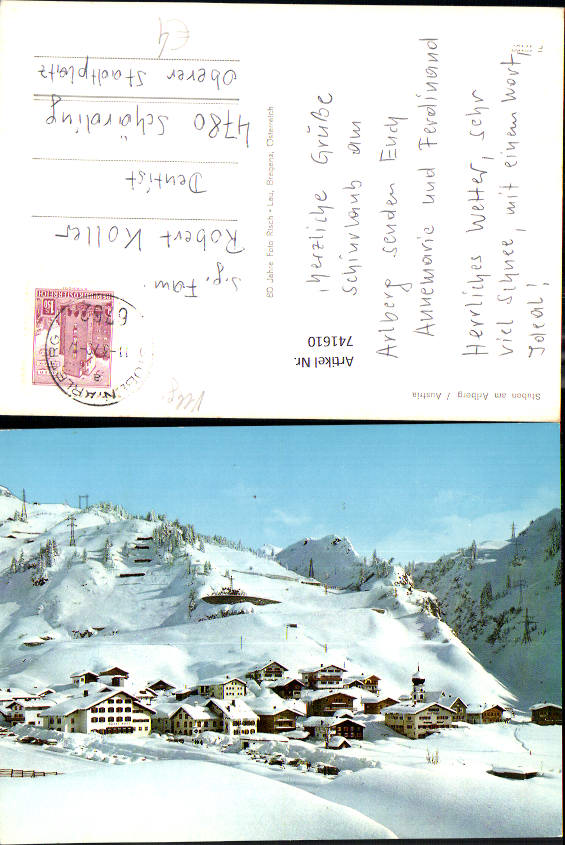 Herzliche Grüße
Schiurlaub am
Arlberg senden Euch
Annemarie und Ferdinand
Herrliches Wetter, sehr
viel Schnee, mit einem Wort,
Ideal!
S.g. Fam.
Robert Koller
Dentist
4780 Schärding
Oberer Stadtplatz
€4
80 Jahre Foto Risch-Lau, Bregenz, Österreich
Stuben am Arlberg / Austria
Artikel Nr.
741610
REPUBLIK ÖSTERREICH
1.50
6762
STUBEN ARLBERG